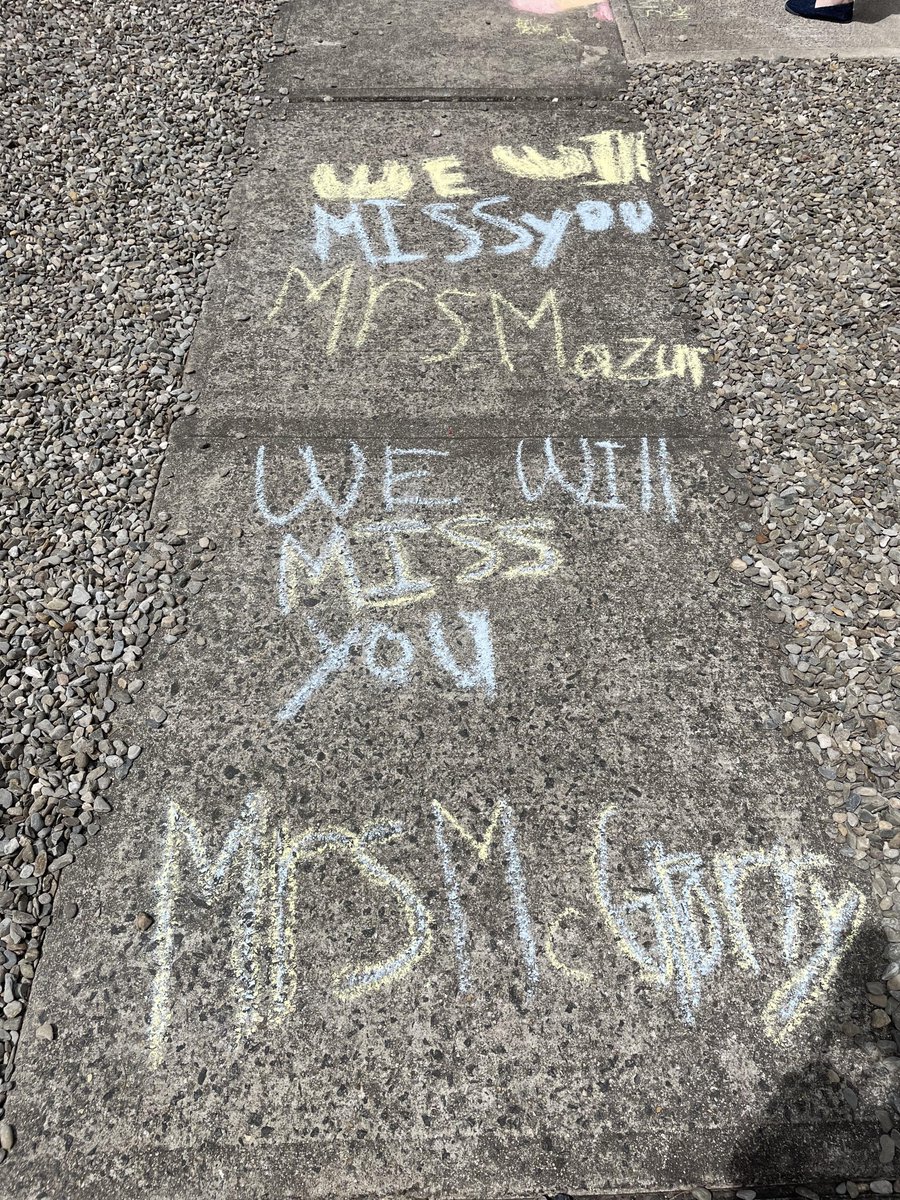 WE Will
MISS you
Mrs Mazur
WE Will
MISS
you
Mrs McGorty